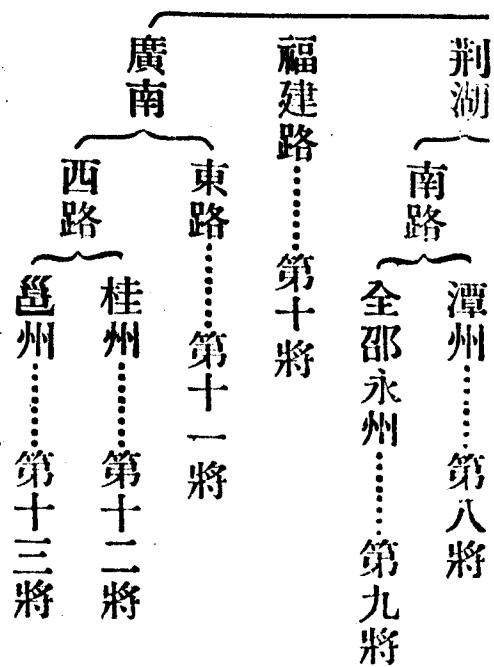 荆湖
南路
潭州……第八將
全邵永州……第九將
福建路……第十將
廣南
東路……第十一將
西路
桂州……第十二將
邕州……第十三將